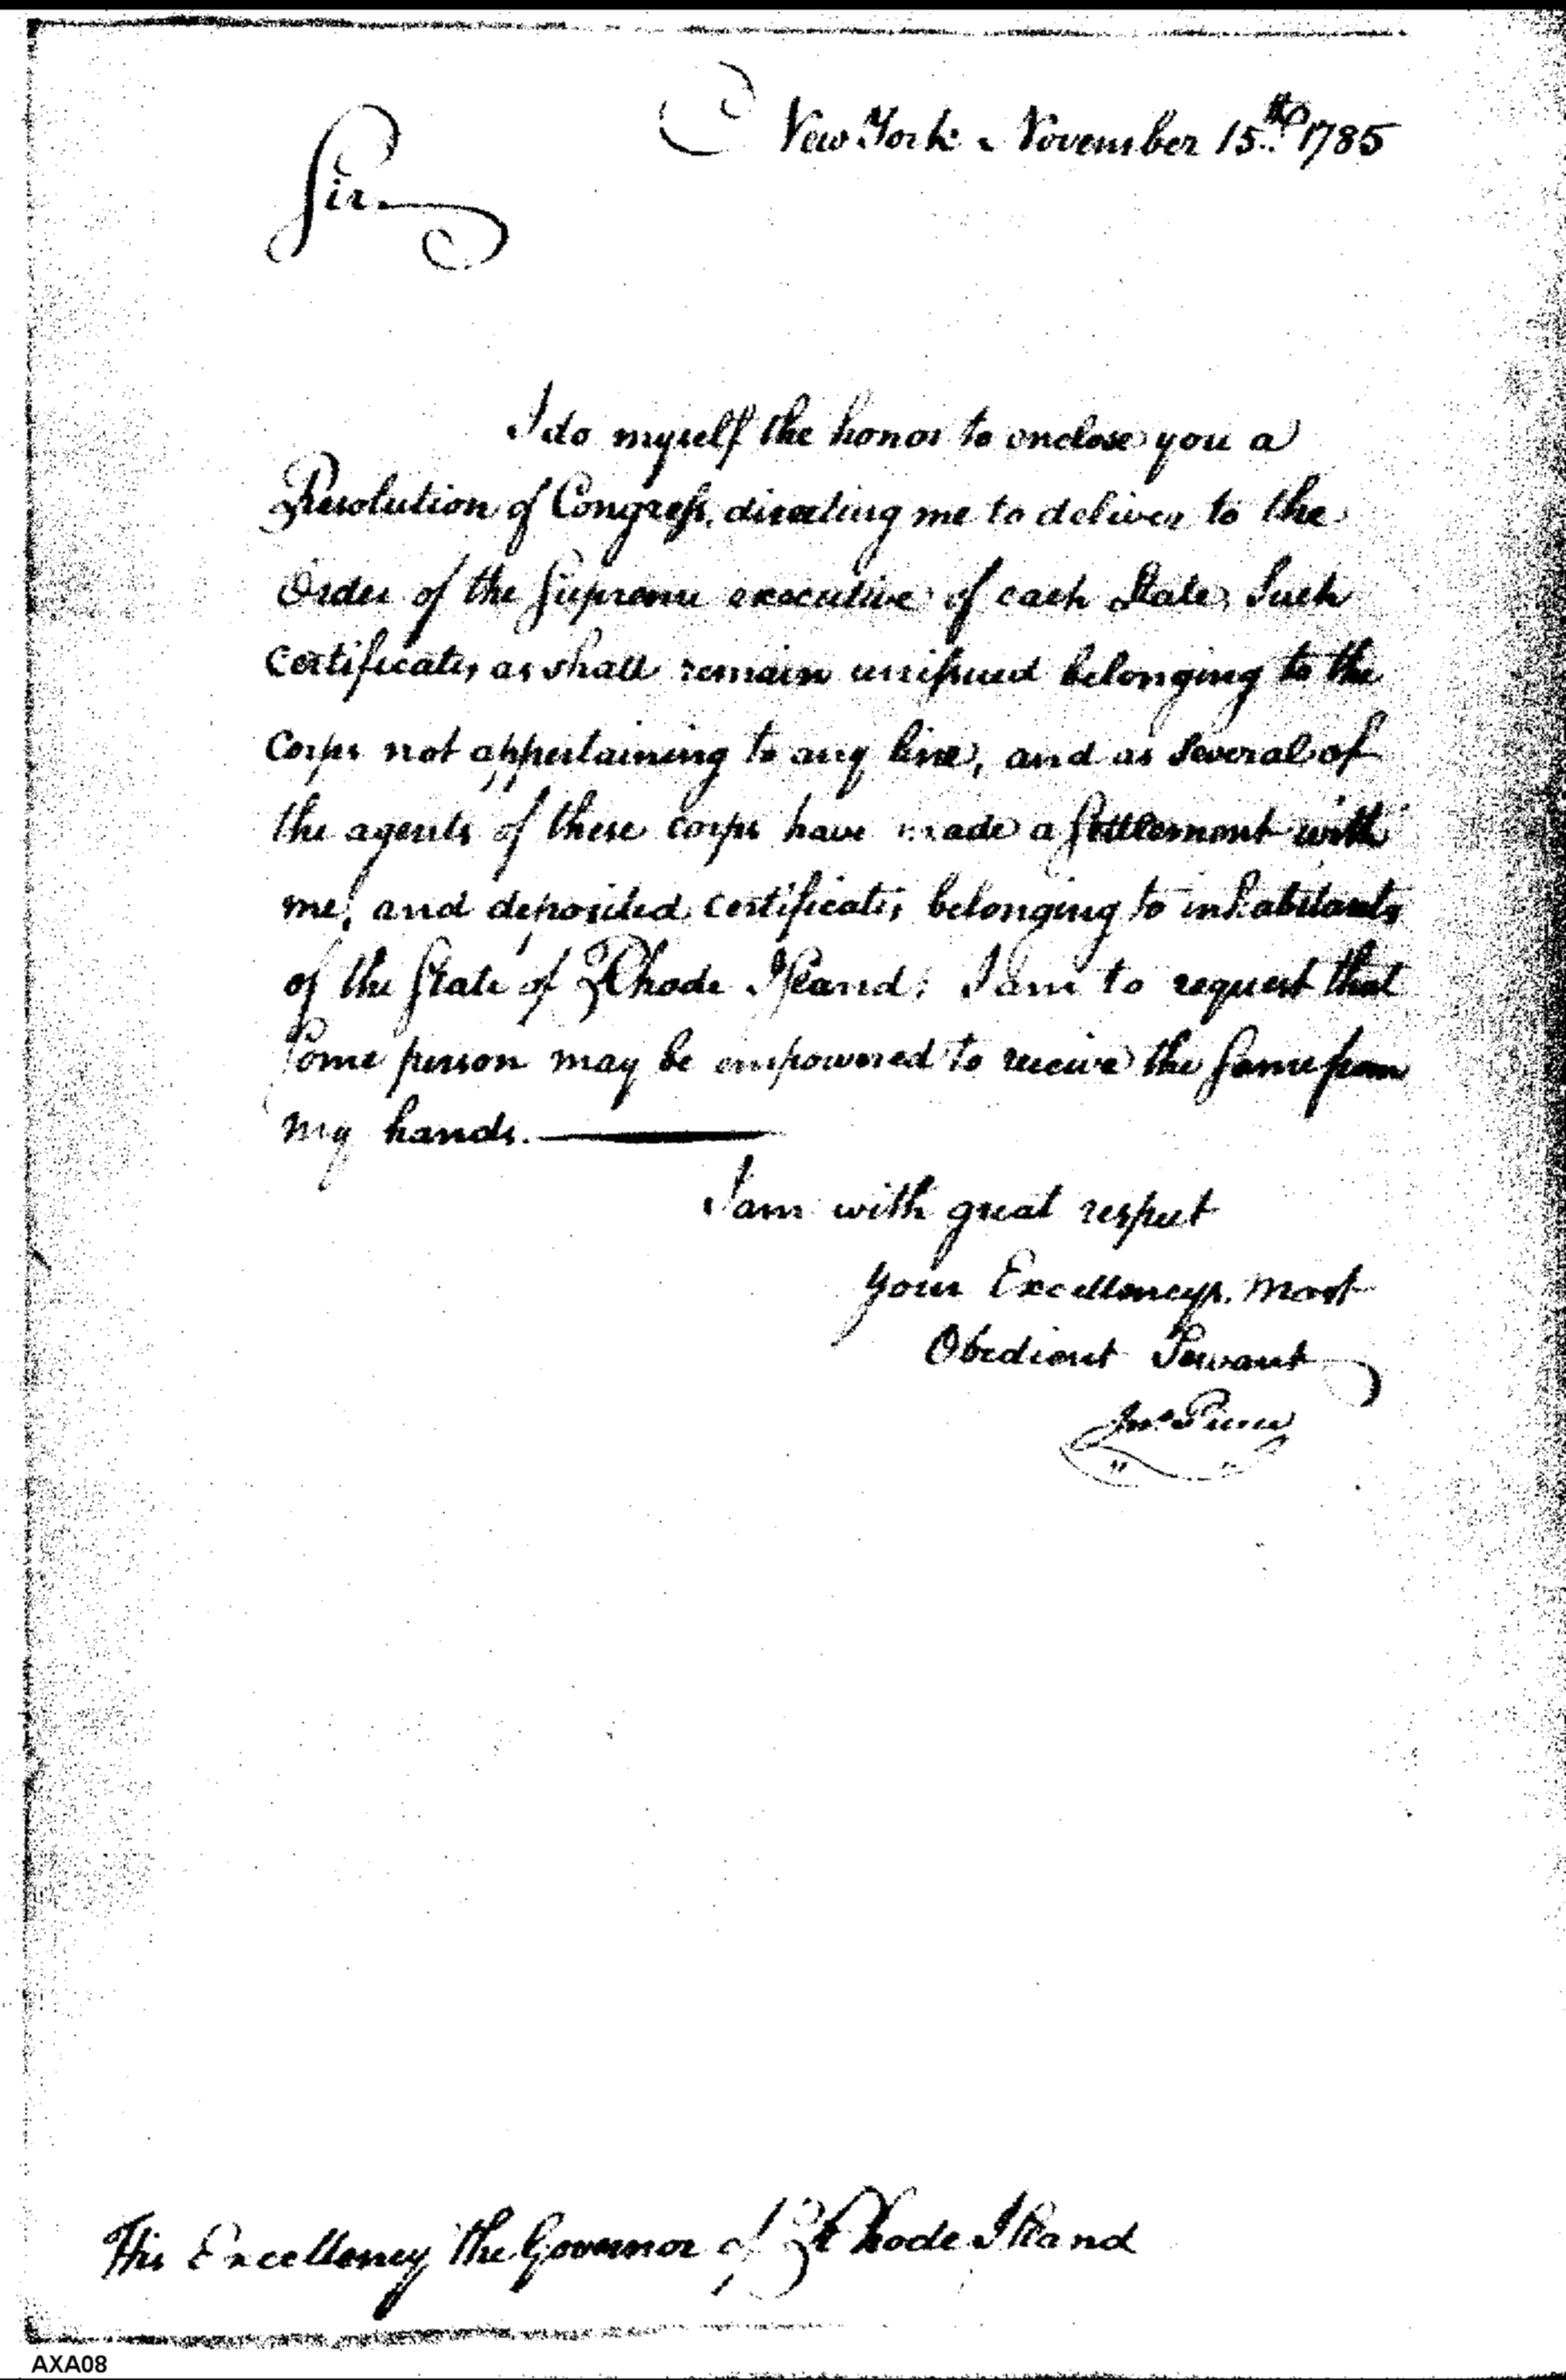 New York November 15th 1785
Sir
I do myself the honor to enclose you a
Resolution of Congress, directing me to deliver to the
Order of the Supreme executive of each State, Such
Certificates, as shall remain unissued belonging to the
Corps not appertaining to any line, and as Several of
the agents of these corps have made a Settlement with
me, and deposited certificates belonging to inhabitants
of the State of Rhode Island; I am to request that
Some person may be empowered to receive the Same from
my hands.
I am with great respect
Your Excellencys. Most
Obedient Servant
Jno. Pierce
His Excellency The Governor of Rhode Island
AXA08